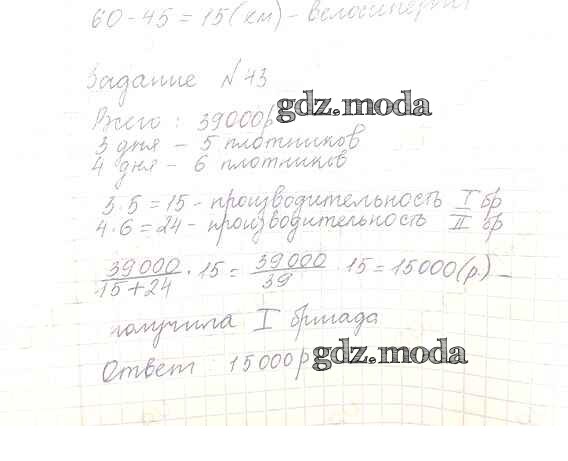 60 - 45 = 15 (км) -
Задание №43
Всего : 39000р gdz.moda
3 дня - 5 плотников
4 дня - 6 плотников
3 · 5 = 15 - производительность I бр
4 · 6 = 24 - производительность II бр
39000/15+24 · 15 = 39000/39 · 15 = 15000 (р.) -
получила I бригада
Ответ : 15000р gdz.moda